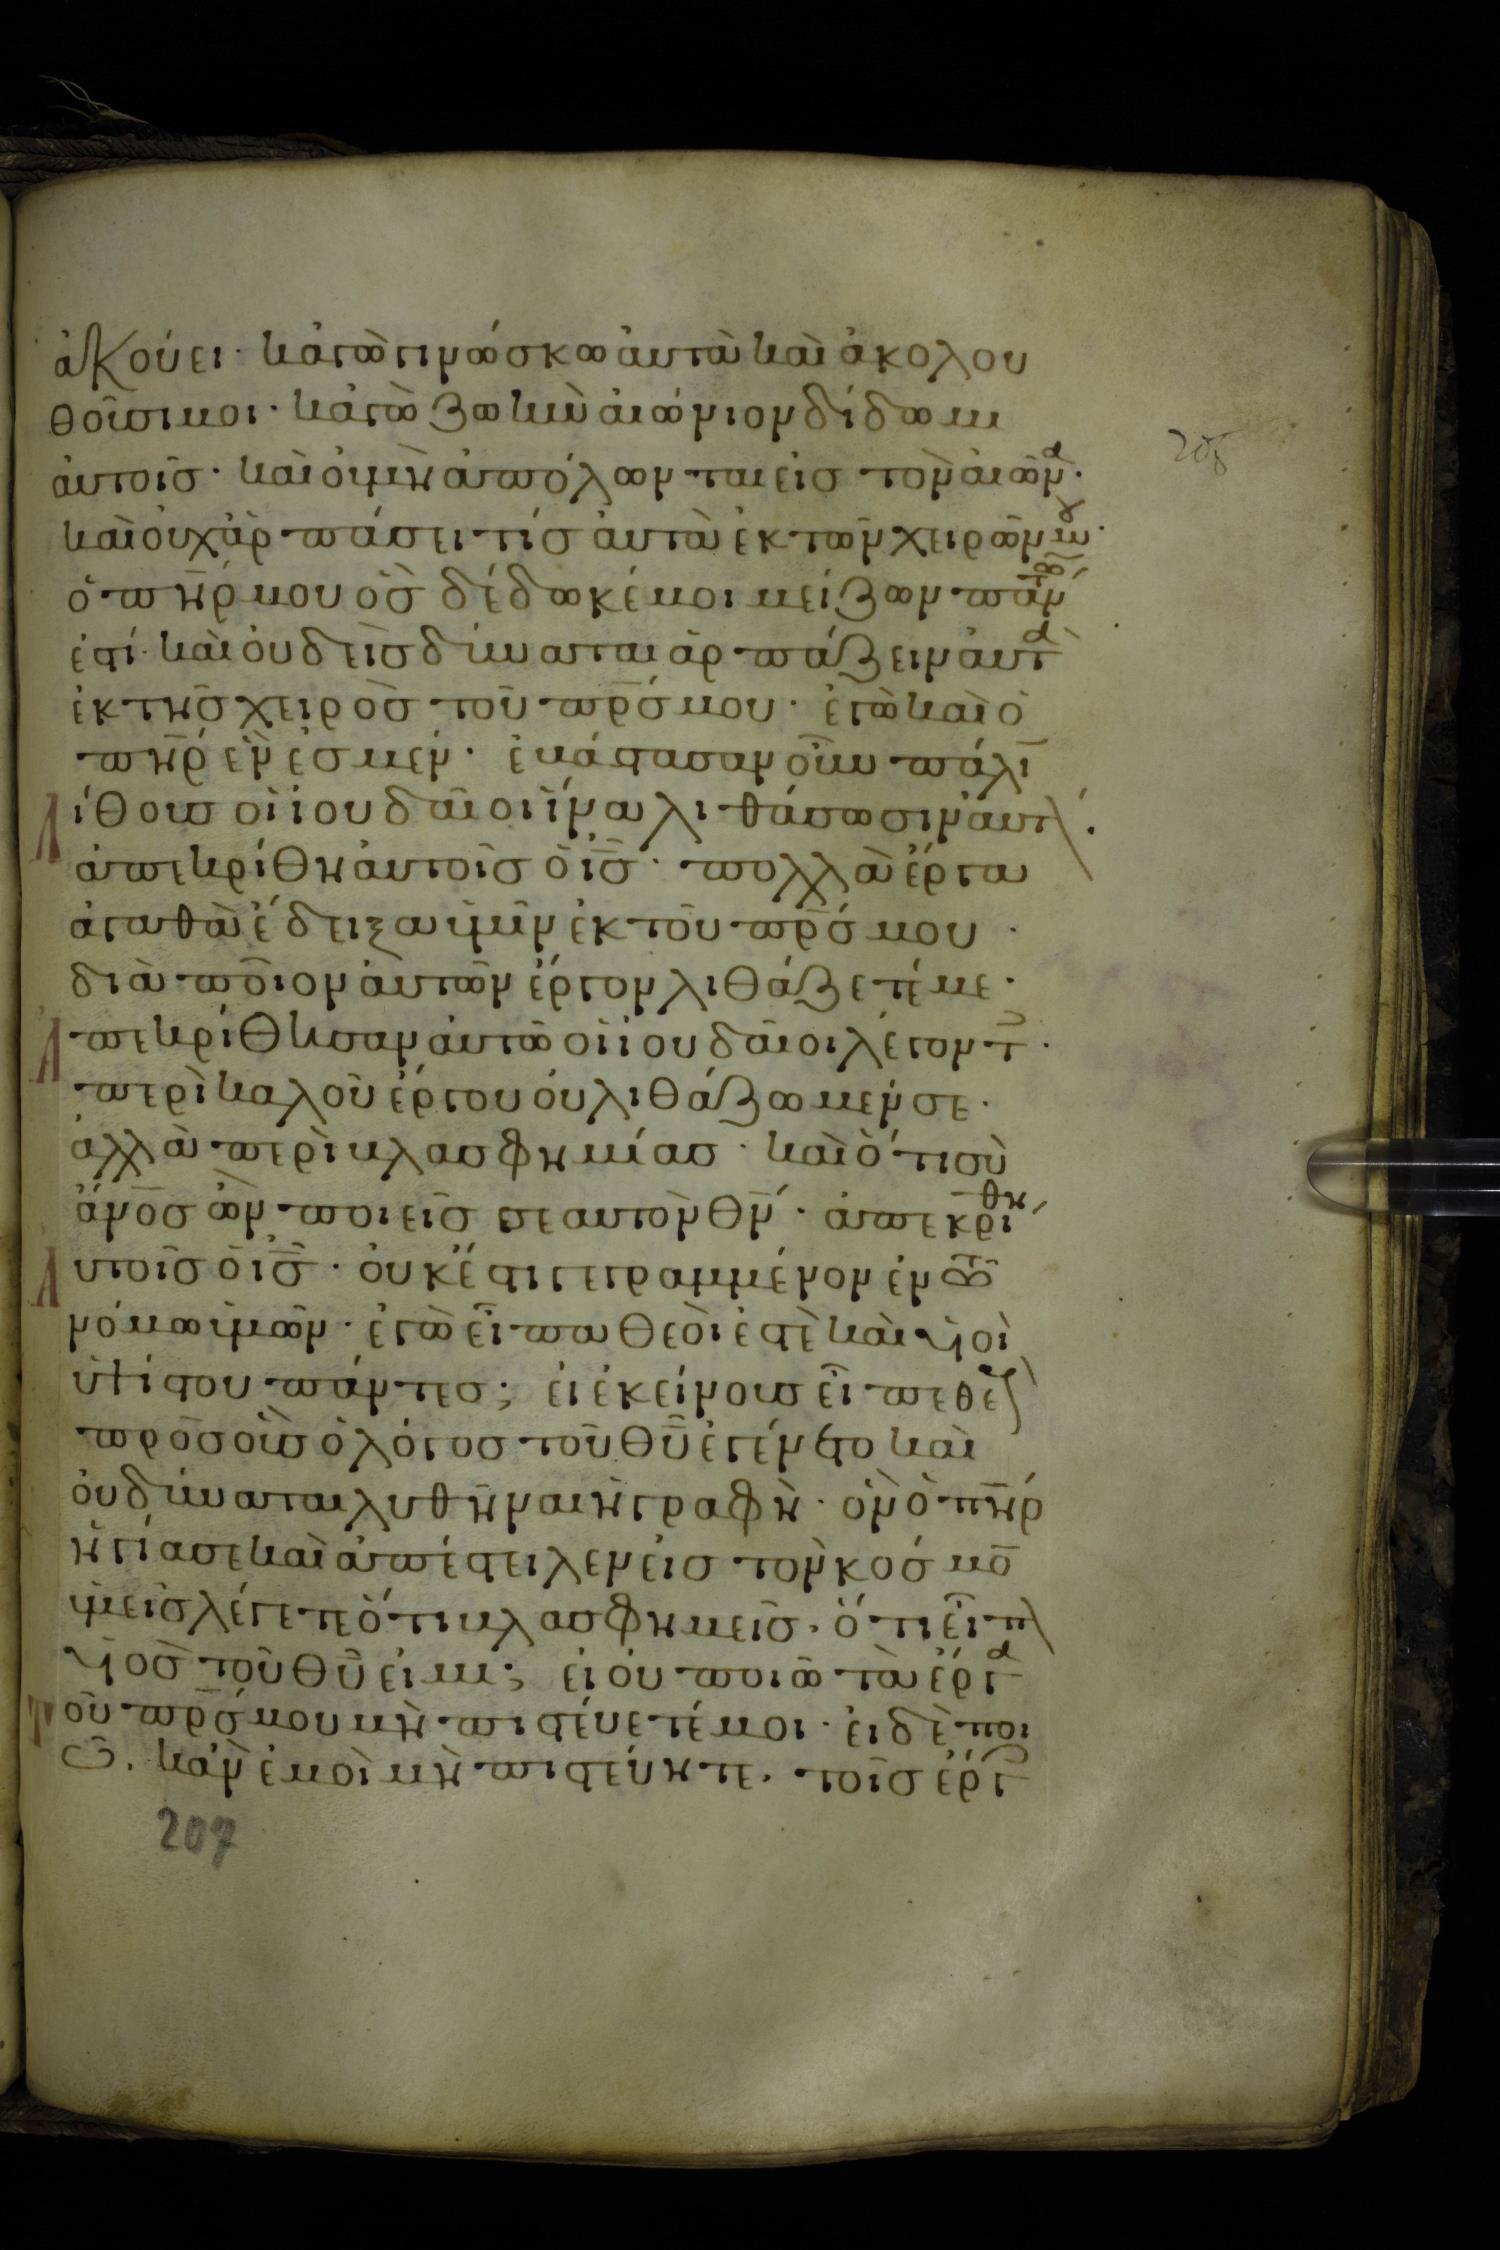 ἀκούει· κἀγὼ γινώσκω αὐτὰ καὶ ἀκολου
θοῦσι μοι· κἀγὼ ζωὴν αἰώνιον δίδωμι
αὐτοῖς· καὶ οὐ μὴ ἀπόλωνται εἰς τὸν αἰῶνα·
καὶ οὐχ ἁρπάσει τίς αὐτὰ ἐκ τῶν χειρῶν μου·
ὁ πη̅ρ μου ὃς δέδωκέ μοι μείζων πάν
ἐστί· καὶ οὐδεὶς δύναται ἁρπάζειν αὐτὰ
ἐκ τῆς χειρὸς τοῦ πρ̅ς μου· ἐγὼ καὶ ὁ
πη̅ρ ἕν ἐσμεν· ἐβάστασαν οὖν πάλι̅
λίθους οἱ ἰουδαῖοι ἵνα λιθάσωσιν αὐτ·
ἀπεκρίθη αὐτοῖς ὁ ι̅ς· πολλὰ ἔργα
ἀγαθὰ ἔδειξα ὑμῖν ἐκ τοῦ πρ̅ς μου·
διὰ ποῖον αὐτῶν ἔργον λιθάζετέ με·
Ἀπεκρίθησαν αὐτῶ οἱ ἰουδαῖοι λέγοντ·
περὶ καλοῦ ἔργου οὐ λιθάζωμέν σε·
ἀλλὰ περὶ βλασφημίας· καὶ ὅτι σὺ
ἄνο̅ς ὢν ποιεῖς σεαυτὸν θν̅· ἀπεκρίθη
Αὐτοῖς ὁ ι̅ς· οὐκ ἔστι γεγραμμένον ἐν τῶ
νόμω ὑμῶν· ἐγὼ εἶπα θεοί ἐστὲ καὶ υἱοὶ
ὑψίστου πάντες; εἰ ἐκείνους εἶπε θε
πρὸς οὓς ὁ λόγος τοῦ θυ̅ ἐγένετο καὶ
οὐ δύναται λυθῆναι ἡ γραφὴ· ὃν ὁ πη̅ρ
ἡγίασε καὶ ἀπέστειλεν εἰς τὸν κόσμο̅
ὑμεῖς λέγετε ὅτι βλασφημεῖς· ὅτι εἶπ
υἱὸς τοῦ θυ̅ εἰμι; εἰ οὐ ποιῶ τὰ ἔργα
Τοῦ πρ̅ς μου μὴ πιστεύετέ μοι· εἰ δὲ ποι
ῶ· κἂν ἐμοὶ μὴ πιστεύητε· τοῖς ἔργ
208
207